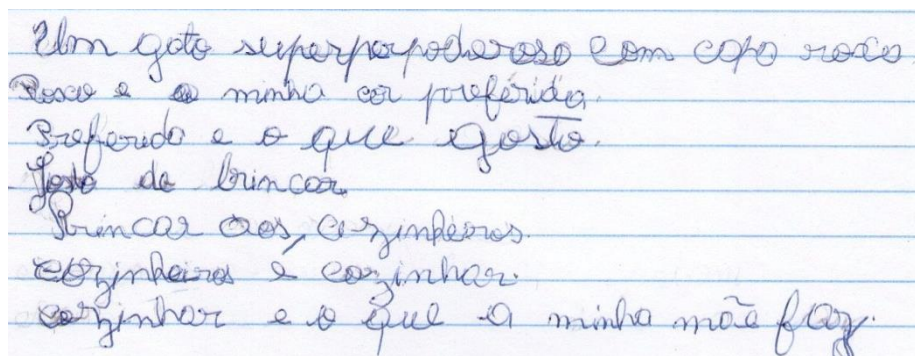 Um gato superperpoderoso com capa roxa.
Roxo e a minha cor preférida.
Preferido e o que gosto.
Gosto de brincar.
Brincar aos, cozinheiros.
cozinheiros é cozinhar.
cozinhar e o que a minha mãe faz.